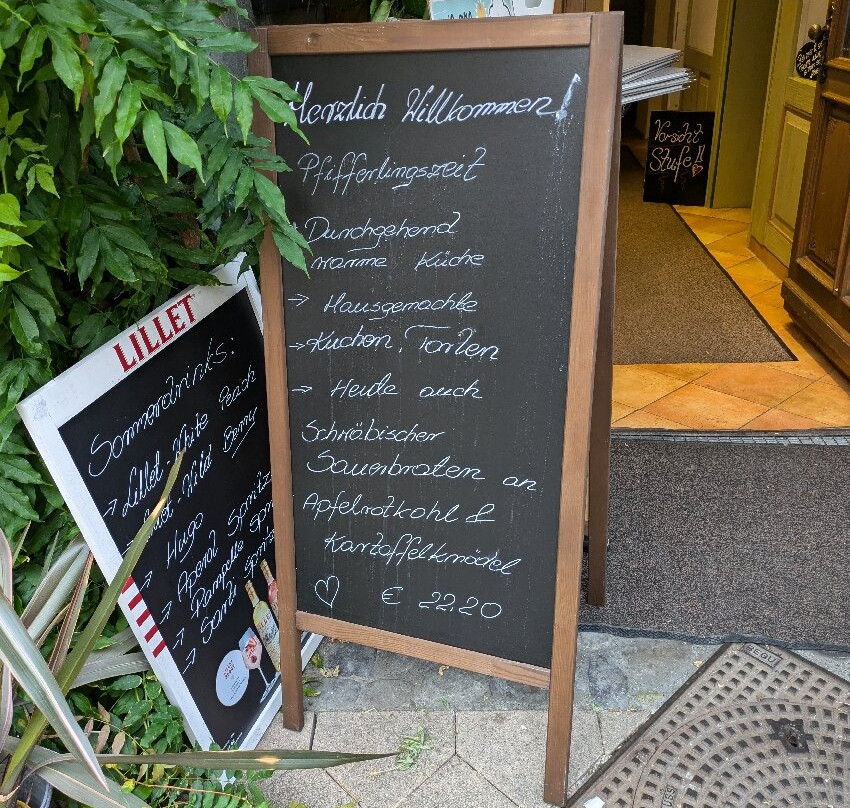 Herzlich Willkommen!
Pfifferlingszeit
Durchgehend
warme Küche
→ Hausgemachte
→ Kuchen, Torten
→ Heute auch
Schwäbischer
Sauerbraten an
Apfelrotkohl &
Kartoffelknödel
♡ € 22.20
LILLET
Sommerdrinks:
→ Lillet-White Peach
Lillet-Wild Berry
→ Hugo
→ Aperol Spritz
→ Pampelle Spritz
→ Sarti Spritz
Vorsicht
Stufe!!